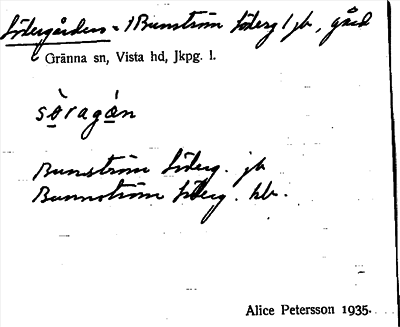 Södergården - 1 Bunström Söderg 1 jb, gård
Gränna sn, Vista hd, Jkpg. l.
sö̀ragán
Bunström Söderg. jb
Bunnström Söderg. kb.
Alice Petersson 1935.